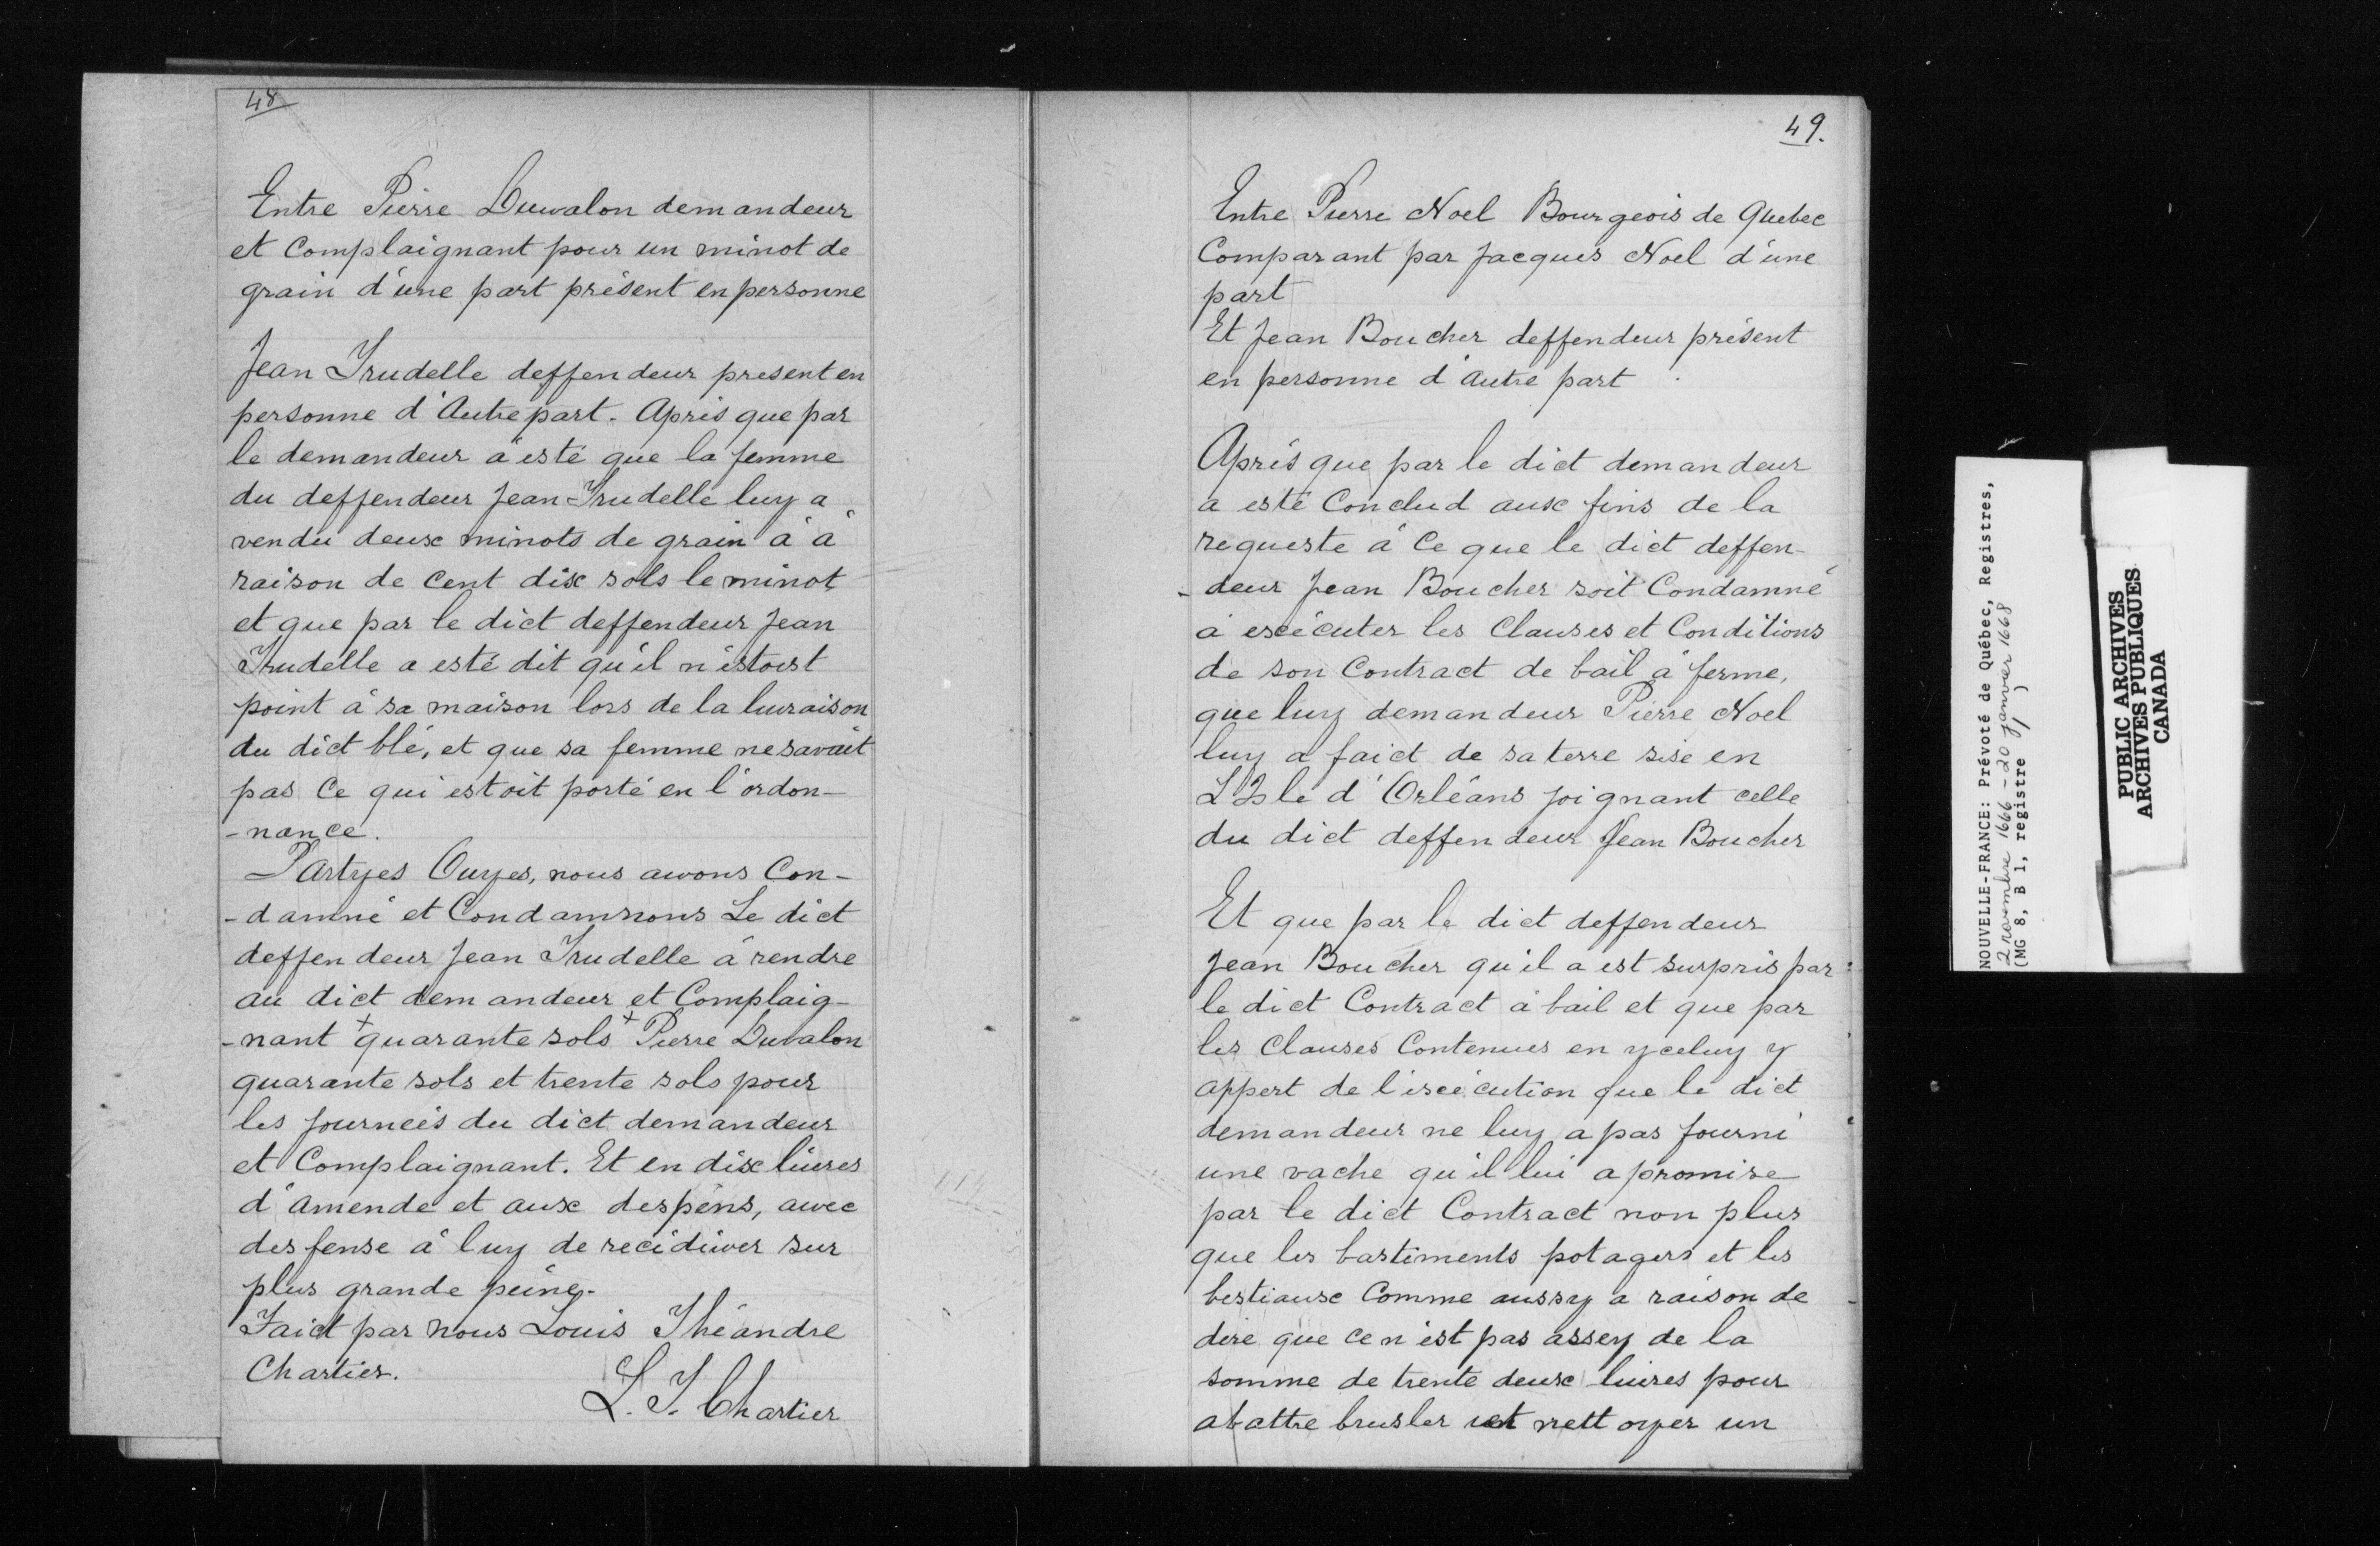 48
Entre Pierre Duwalon demandeur
et Complaignant pour un minot de
grain d'une part présent en personne
Jean Trudelle deffendeur present en
personne d'Autre part. Après que par
le demandeur a esté que la femme
du deffendeur Jean Trudelle luy a
vendu deux minots de grain à à
raison de Cent dix sols le minot
et que par le dict deffendeur Jean
Trudelle a esté dit qu'il n'estoist
point à sa maison lors de la luvraison
du dict blé, et que sa femme ne savait
pas Ce qui estoit porté en l'ordon-
-nance.
PArtyes Ouyes, nous avvons Con-
-damné et Condamnons Le dict
deffendeur Jean Trudelle à rendre
au dict demandeur et Complaig-
-nant + quarante sols + Pierre Duvalon
quarante sols et trente sols pour
les journeés du dict demandeur
et Complaignant. Et en dix liures
d'Amende et aux despens, avvec
desfense à luy de recidiver sur
plus grande peine.
Faict par nous Louis Théandre
Chartier.
L. T. Chartier
49.
Entre Pierre Noel Bourgeois de Quebec
Comparant par Jacques Noel d'une
part
Et Jean Boucher deffendeur présent
en personne d'Autre part
Après que par le dict demandeur
a esté Conclud aux fins de la
requeste à Ce que le dict deffen-
-deur Jean Boucher soit Condamné
à exécuter les Clauses et Conditions
de son Contract de bail à ferme,
que luy demandeur Pierre Noel
luy a faict de sa terre sise en
L'Isle d'Orléans joignant celle
du dict deffendeur Jean Boucher
Et que par le dict deffendeur
Jean Boucher qu'il a est surpris par
le dict Contract à bail et que par
les Clauses Contenues en yceluy y
appert de l'exécution que le dict
demandeur ne luy a pas fourni
une vache qu'il lui a promise
par le dict Contract non plus
que les bastiments potagers et les
bestiaux Comme aussy a raison de
dire que ce n'est pas assey de la
somme de trente deux liures pour
abattre brusler et nettoyer un
NOUVELLE-FRANCE: Prévoté de Québec, Registres,
2 novembre 1666 - 20 janvier 1668
(MG 8, B 1, registre 1)
PUBLIC ARCHIVES
ARCHIVES PUBLIQUES
CANADA